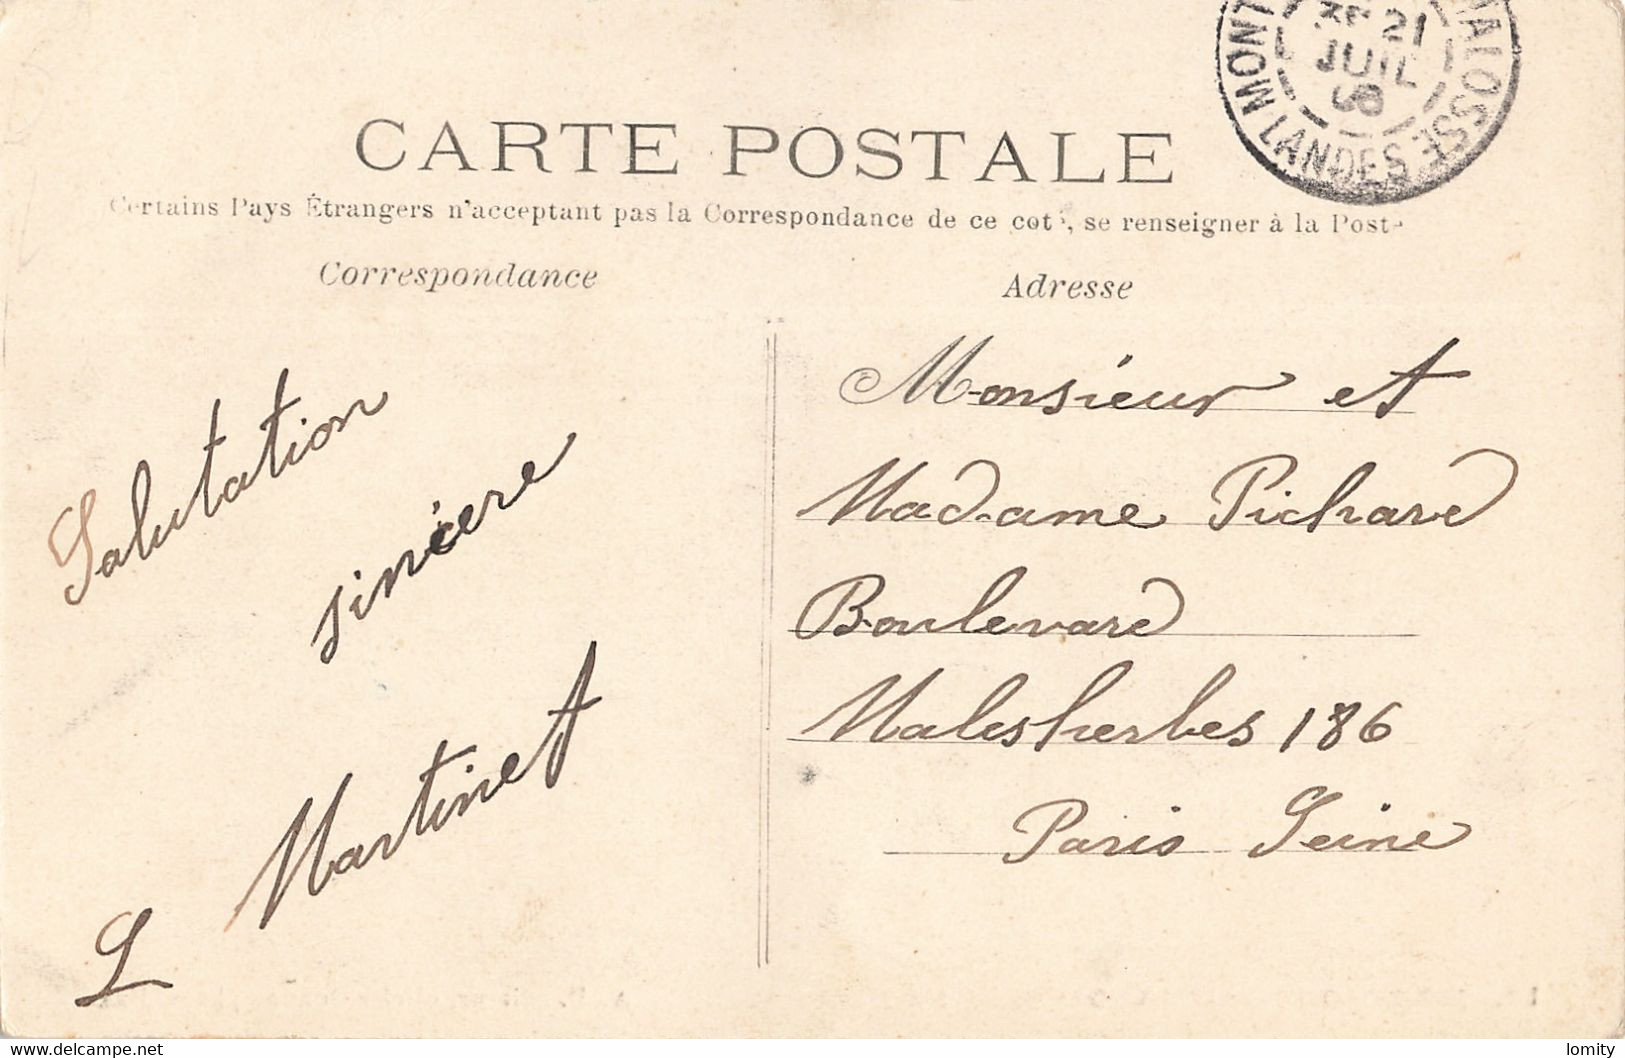 MONT ALOSSE
21
JUIL
08
LANDES
CARTE POSTALE
Certains Pays Étrangers n'acceptant pas la Correspondance de ce coté, se renseigner à la Poste
Correspondance
Adresse
Salutation
sincère
L Martinet
Monsieur et
Madame Pichard
Boulevard
Malesherbes 186
Paris Seine
www.delcampe.net
lomity